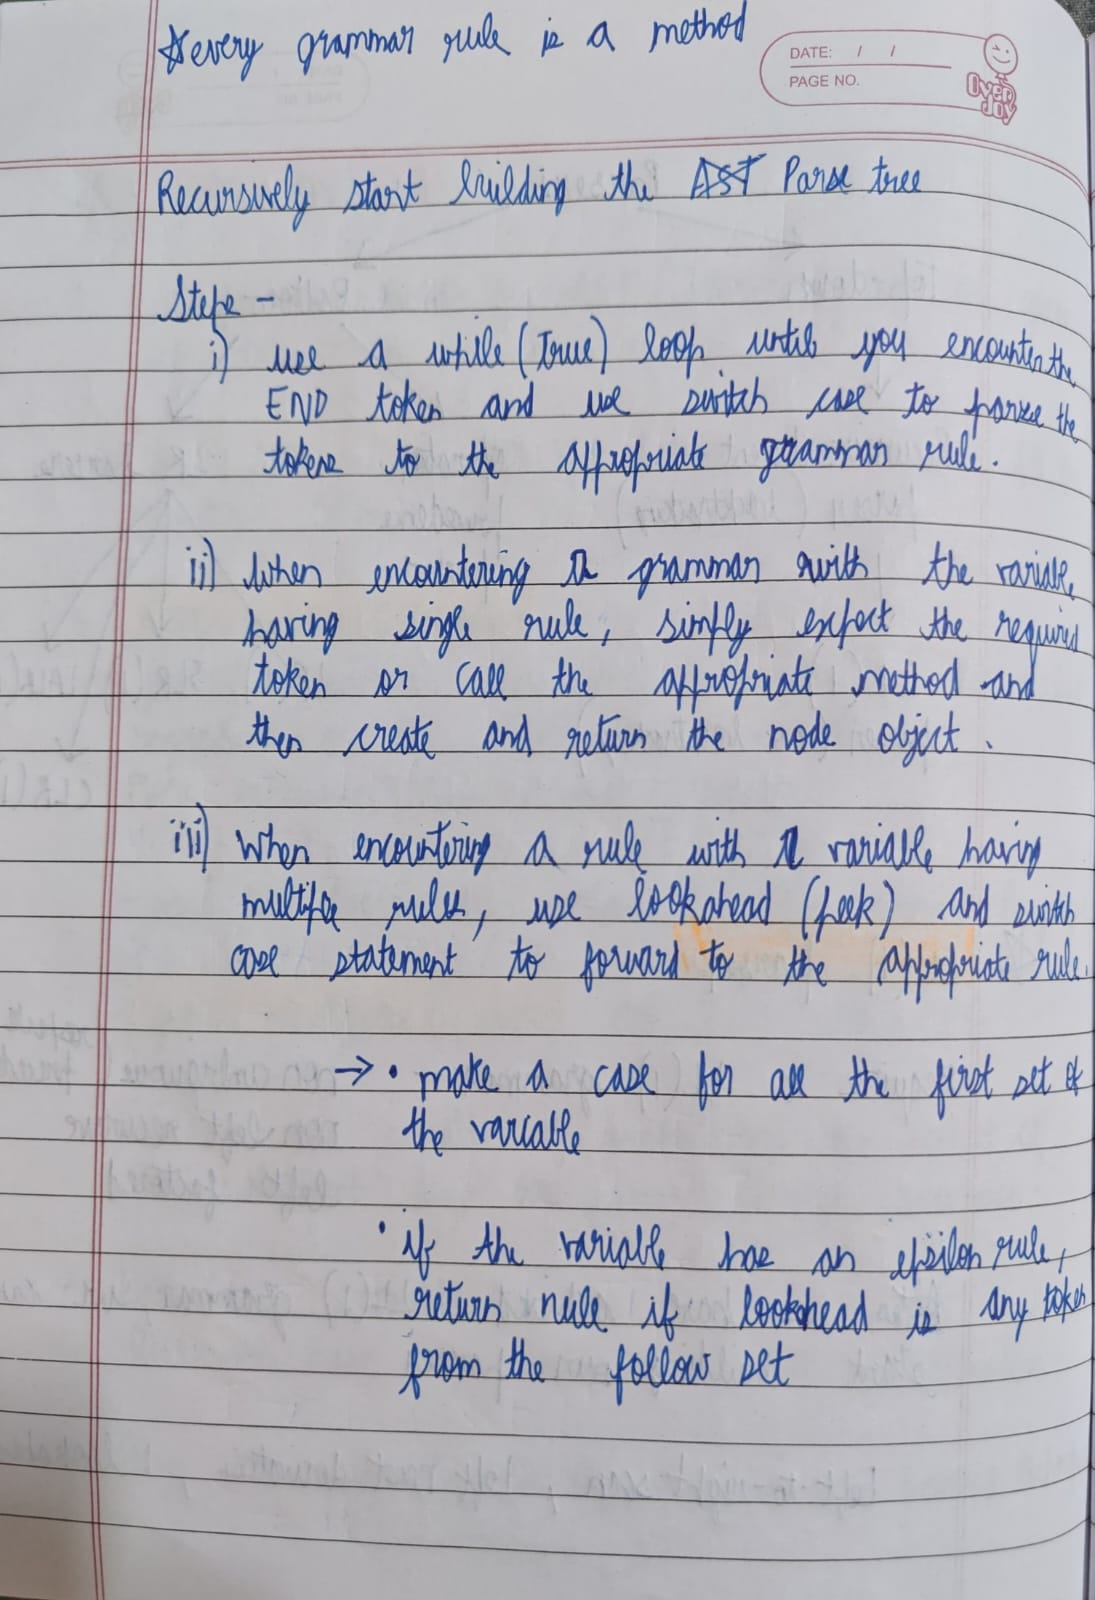 * every grammar rule is a method
DATE: / /
PAGE NO.
Over Joy
Recursively start building the AST Parse tree
Steps -
i) use a while (True) loop until you encounter the
END token and use switch case to parse the
tokens to the appropriate grammar rule.
ii) When encountering a grammar with the variable
having single rule, simply expect the required
token or call the appropriate method and
then create and return the node object.
iii) When encountering a rule with a variable having
multiple rules, use lookahead (peek) and switch
case statement to forward to the appropriate rule.
→ • make a case for all the first set of
the variable
• if the variable has an epsilon rule,
return null if lookhead is any token
from the follow set